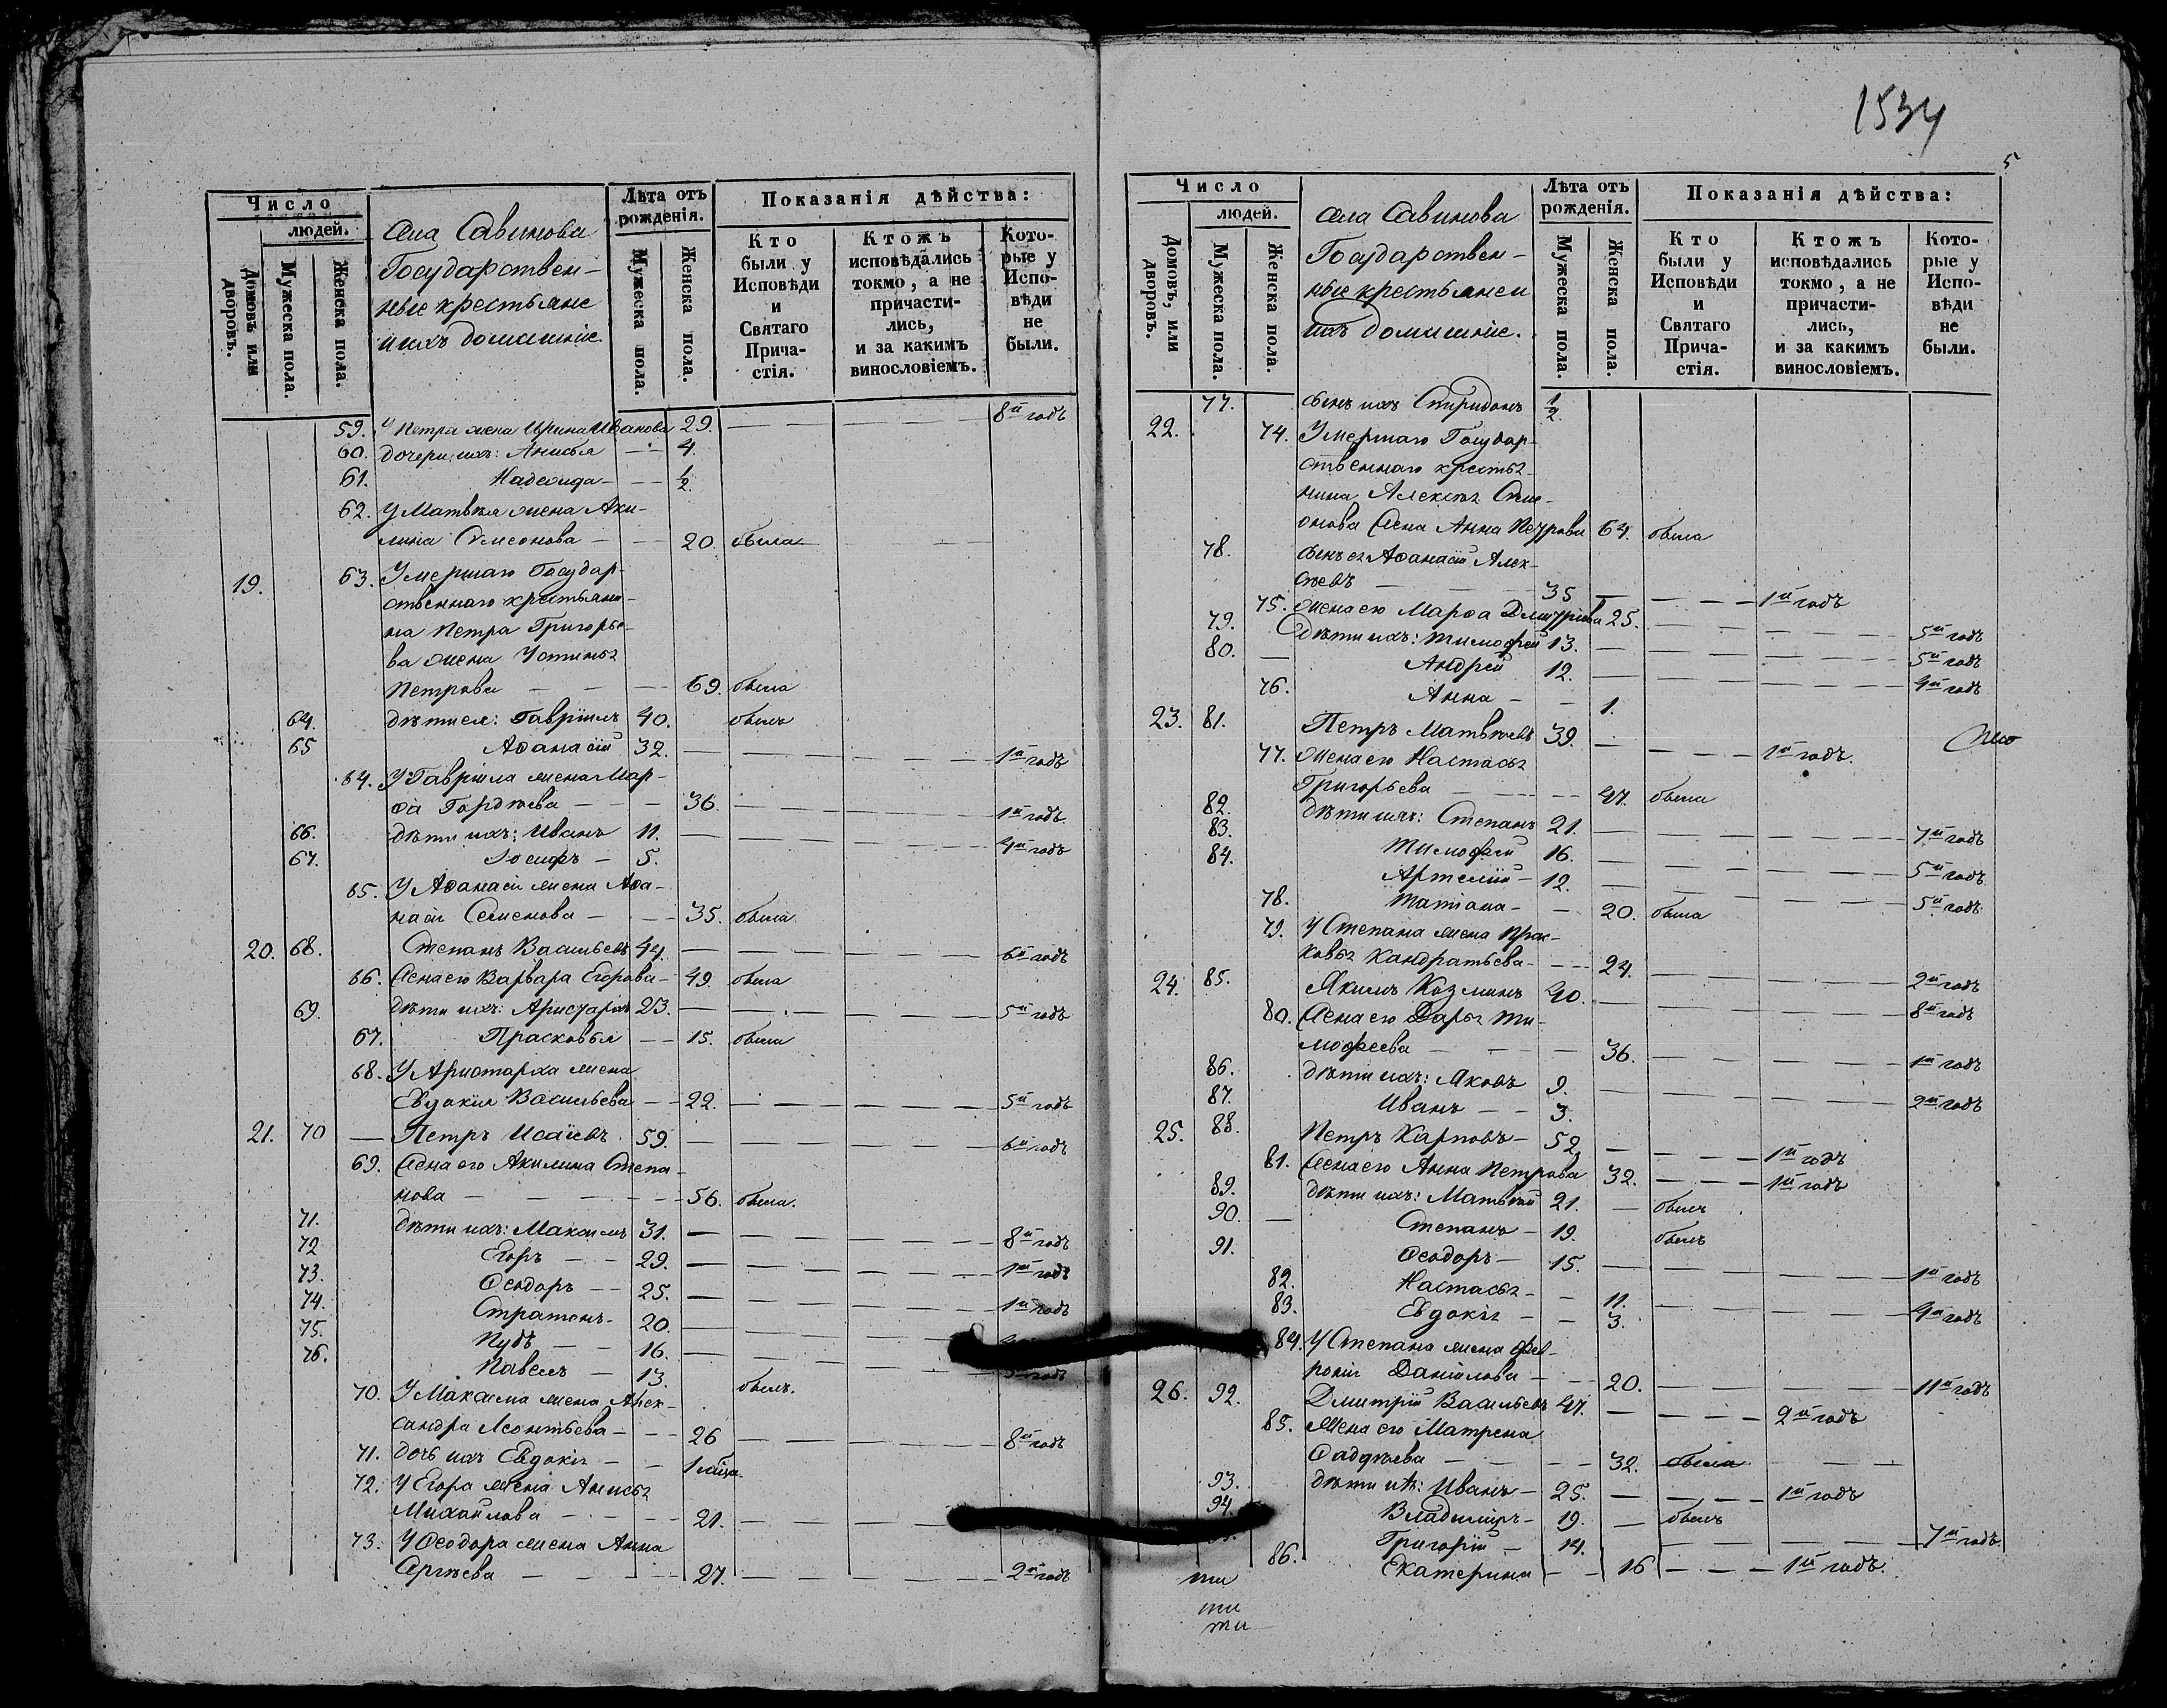 Число
людей.
Домовъ или дворовъ.
Мужеска пола.
Женска пола.
села Савинова
Государствен-
ные крестьяне
и ихъ домашніе.
Лѣта отъ рожденія.
Мужеска пола.
Женска пола.
Показанія дѣйства:
Кто были у Исповѣди и Святаго Прича-стія.
Ктожъ исповѣдались токмо, а не причасти-лись, и за какимъ винословіемъ.
Кото-рые у Испо-вѣди не были.
59. У Петра жена Ирина Иванова 29. 8й годъ
60. дочери ихъ: Анисья 4.
61. Надежда 1/2.
62. У Матвѣя жена Аку-
лина Симеонова 20. была
19. 63. Умершаго Государ-
ственнаго крестьяни-
на Петра Григорье-
ва жена Устинья
Петрова 69. была
64. дѣти ея: Гавріилъ 40. былъ
65 Аѳанасій 32. 1й годъ
64. У Гавріила жена Мар-
ѳа Гордѣева 36. 1й годъ
66. дѣти ихъ: Иванъ 11. 4й годъ
67. Іосифъ 5.
65. У Аѳанасія жена Аѳа-
насія Семенова 35. была
20. 68. Степанъ Васильевъ 44. 6й годъ
66. Жена его Варвара Егорова 49. была
69. дѣти ихъ: Аристархъ 23. 5й годъ
67. Прасковья 15. была
68. У Аристарха жена
Евдокія Васильева 22. 5й годъ
21. 70 Петръ Исаіевъ 59. 6й годъ
69. Жена его Акилина Степа-
нова 56. была.
71. дѣти ихъ: Максимъ 31. 8й годъ
72 Егоръ 29. 1й годъ
73. Ѳеодоръ 25. 1й годъ
74. Стратонъ 20.
75. Пудъ 16.
76. Павелъ 13. былъ.
70. У Максима жена Алек-
сандра Леонтьева 26 8й годъ
71. дочь ихъ Евдокія
72. У Егора жена Анисья
Михайлова 21.
73. У Ѳеодора жена Анна
Сергѣева 27. 2й годъ
1534
5
Число
людей.
Домовъ, или дворовъ.
Мужеска пола.
Женска пола.
села Савинова
Государствен-
ные крестьяне и
ихъ домашніе.
Лѣта отъ рожденія.
Мужеска пола.
Женска пола.
Показанія дѣйства:
Кто были у Исповѣди и Святаго Прича-стія.
Ктожъ исповѣдались токмо, а не причасти-лись, и за какимъ винословіемъ.
Кото-рые у Испо-вѣди не были.
77. сынъ ихъ Спиридонъ 1/2.
22. 74. Умершаго Государ-
ственнаго крестья-
нина Алексѣя Сим-
онова жена Анна Петрова 64. была
78. сынъ ея Аѳанасій Алек-
сѣевъ 35 1й годъ
75. Жена его Марѳа Дмитріева 25. 5й годъ
79. дѣти ихъ: Тимофей 13. 5й годъ
80. Андрей 12. 4й годъ
76. Анна 1.
23. 81. Петръ Матвѣевъ 39. 1й годъ.
77. Жена его Настасья
Григорьева 47. была
82. дѣти ихъ: Степанъ 21. 7й годъ
83. Тимофей 16. 5й годъ
84. Артемій 12. 5й годъ
78. Татіана 20. была
79. У Степана жена Прас-
ковья Кандратьева 24. 2й годъ
24. 85. Якимъ Козминъ 40. 8й годъ
80. Жена его Дарья Ти-
мофеева 36. 1й годъ
86. дѣти ихъ: Яковъ 9. 2й годъ
87. Иванъ 3.
25. 88. Петръ Карповъ 52. 1й годъ
81. Жена его Анна Петрова 32. 1й годъ
89. дѣти ихъ: Матвѣй 21. былъ
90. Степанъ 19. былъ
91. Ѳеодоръ 15. 1й годъ
82. Настасья 11. 4й годъ
83. Евдокія 3.
84. У Степана жена Фев-
ронія Даніилова 20. 11й годъ
26. 92. Дмитрій Васильевъ 47. 2й годъ
85. Жена его Матрена
Ѳаддѣева 32. была
93. дѣти ихъ: Иванъ 25. 1й годъ
94. Владиміръ 19. былъ
Григорій 14. 7й годъ
86. Екатерина 16 1й годъ.
ти
ти
ти